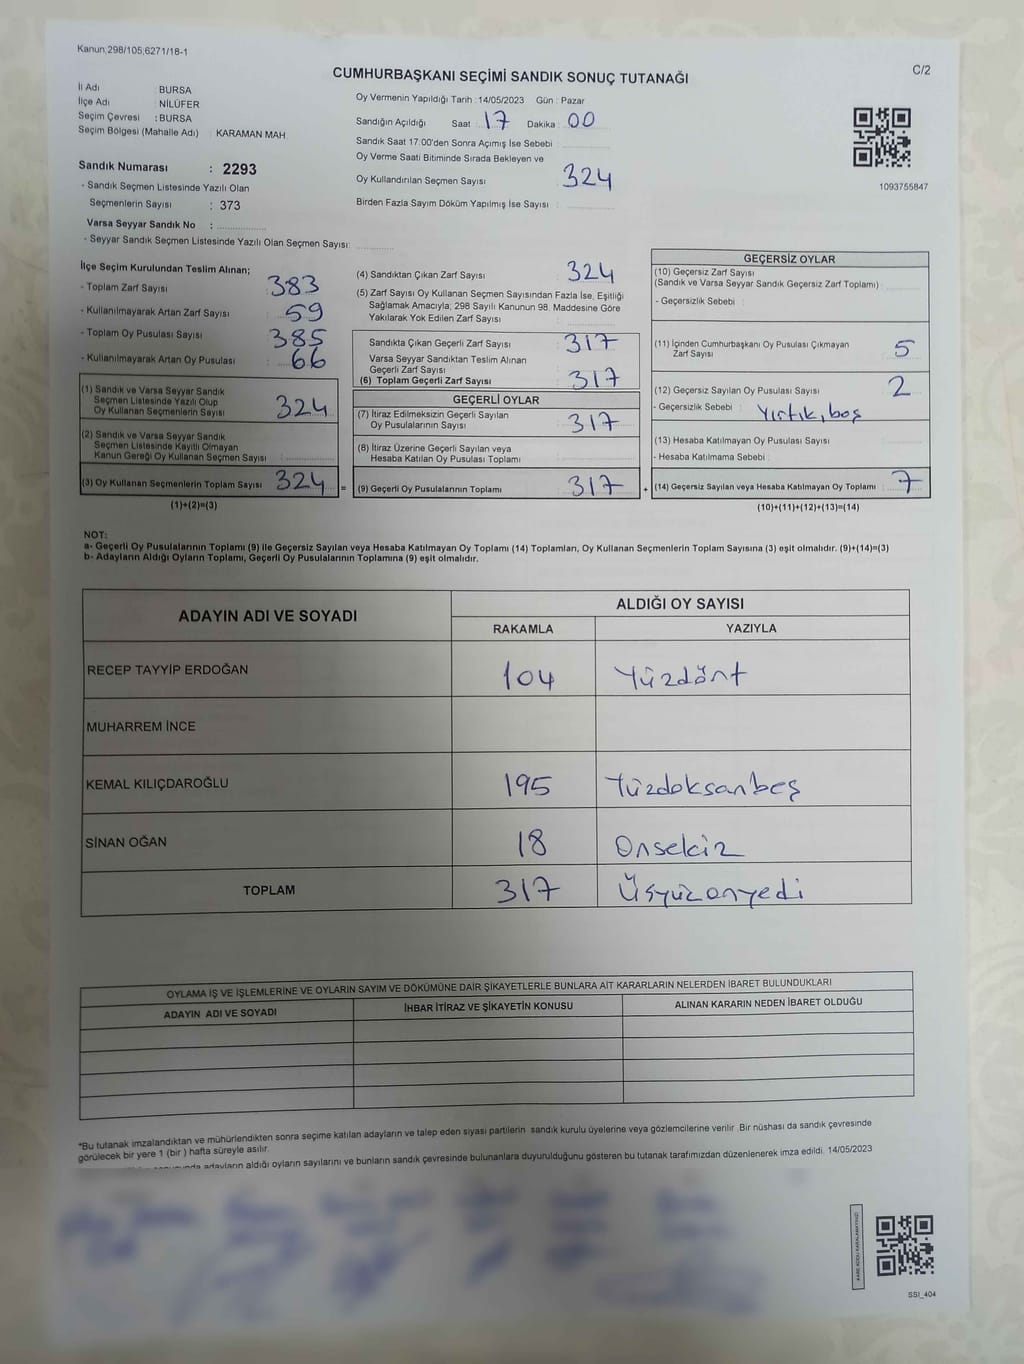 Kanun;298/105;6271/18-1
C/2
CUMHURBAŞKANI SEÇİMİ SANDIK SONUÇ TUTANAĞI
İl Adı : BURSA
İlçe Adı : NİLÜFER
Seçim Çevresi : BURSA
Seçim Bölgesi (Mahalle Adı) : KARAMAN MAH.
Sandık Numarası : 2293
- Sandık Seçmen Listesinde Yazılı Olan
Seçmenlerin Sayısı : 373
Varsa Seyyar Sandık No :
- Seyyar Sandık Seçmen Listesinde Yazılı Olan Seçmen Sayısı:
Oy Vermenin Yapıldığı Tarih :14/05/2023 Gün : Pazar
Sandığın Açıldığı Saat 17 Dakika 00
Sandık Saat 17:00'den Sonra Açımış İse Sebebi
Oy Verme Saati Bitiminde Sırada Bekleyen ve
Oy Kullandırılan Seçmen Sayısı : 324
Birden Fazla Sayım Döküm Yapılmış İse Sayısı :
1093755847
İlçe Seçim Kurulundan Teslim Alınan;
- Toplam Zarf Sayısı : 383
- Kullanılmayarak Artan Zarf Sayısı : 59
- Toplam Oy Pusulası Sayısı : 385
- Kullanılmayarak Artan Oy Pusulası : 66
(1) Sandık ve Varsa Seyyar Sandık
Seçmen Listesinde Yazılı Olup
Oy Kullanan Seçmenlerin Sayısı : 324
(2) Sandık ve Varsa Seyyar Sandık
Seçmen Listesinde Kayıtlı Olmayan
Kanun Gereği Oy Kullanan Seçmen Sayısı :
(3) Oy Kullanan Seçmenlerin Toplam Sayısı : 324 =
(1)+(2)=(3)
(4) Sandıktan Çıkan Zarf Sayısı : 324
(5) Zarf Sayısı Oy Kullanan Seçmen Sayısından Fazla İse, Eşitliği
Sağlamak Amacıyla; 298 Sayılı Kanunun 98. Maddesine Göre
Yakılarak Yok Edilen Zarf Sayısı :
Sandıkta Çıkan Geçerli Zarf Sayısı : 317
Varsa Seyyar Sandıktan Teslim Alınan
Geçerli Zarf Sayısı
(6) Toplam Geçerli Zarf Sayısı : 317
GEÇERLİ OYLAR
(7) İtiraz Edilmeksizin Geçerli Sayılan
Oy Pusulalarının Sayısı : 317
(8) İtiraz Üzerine Geçerli Sayılan veya
Hesaba Katılan Oy Pusulası Toplamı :
(9) Geçerli Oy Pusulalarının Toplamı : 317 +
GEÇERSİZ OYLAR
(10) Geçersiz Zarf Sayısı
(Sandık ve Varsa Seyyar Sandık Geçersiz Zarf Toplamı) :
- Geçersizlik Sebebi :
(11) İçinden Cumhurbaşkanı Oy Pusulası Çıkmayan
Zarf Sayısı : 5
(12) Geçersiz Sayılan Oy Pusulası Sayısı : 2
- Geçersizlik Sebebi : Yırtık, boş
(13) Hesaba Katılmayan Oy Pusulası Sayısı :
- Hesaba Katılmama Sebebi :
(14) Geçersiz Sayılan veya Hesaba Katılmayan Oy Toplamı : 7
(10)+(11)+(12)+(13)=(14)
NOT:
a- Geçerli Oy Pusulalarının Toplamı (9) ile Geçersiz Sayılan veya Hesaba Katılmayan Oy Toplamı (14) Toplamları, Oy Kullanan Seçmenlerin Toplam Sayısına (3) eşit olmalıdır. (9)+(14)=(3)
b- Adayların Aldığı Oyların Toplamı, Geçerli Oy Pusulalarının Toplamına (9) eşit olmalıdır.
ADAYIN ADI VE SOYADI
ALDIĞI OY SAYISI
RAKAMLA YAZIYLA
RECEP TAYYİP ERDOĞAN 104 Yüzdört
MUHARREM İNCE
KEMAL KILIÇDAROĞLU 195 Yüzdoksanbeş
SİNAN OĞAN 18 Onsekiz
TOPLAM 317 Üçyüzonyedi
OYLAMA İŞ VE İŞLEMLERİNE VE OYLARIN SAYIM VE DÖKÜMÜNE DAİR ŞİKAYETLERLE BUNLARA AİT KARARLARIN NELERDEN İBARET BULUNDUKLARI
ADAYIN ADI VE SOYADI İHBAR İTİRAZ VE ŞİKAYETİN KONUSU ALINAN KARARIN NEDEN İBARET OLDUĞU
*Bu tutanak imzalandıktan ve mühürlendikten sonra seçime katılan adayların ve talep eden siyasi partilerin sandık kurulu üyelerine veya gözlemcilerine verilir .Bir nüshası da sandık çevresinde
görülecek bir yere 1 (bir ) hafta süreyle asılır.
adayların aldığı oyların sayılarını ve bunların sandık çevresinde bulunanlara duyurulduğunu gösteren bu tutanak tarafımızdan düzenlenerek imza edildi. 14/05/2023
KARE KODU KARALAMAYINIZ!
SSI_404